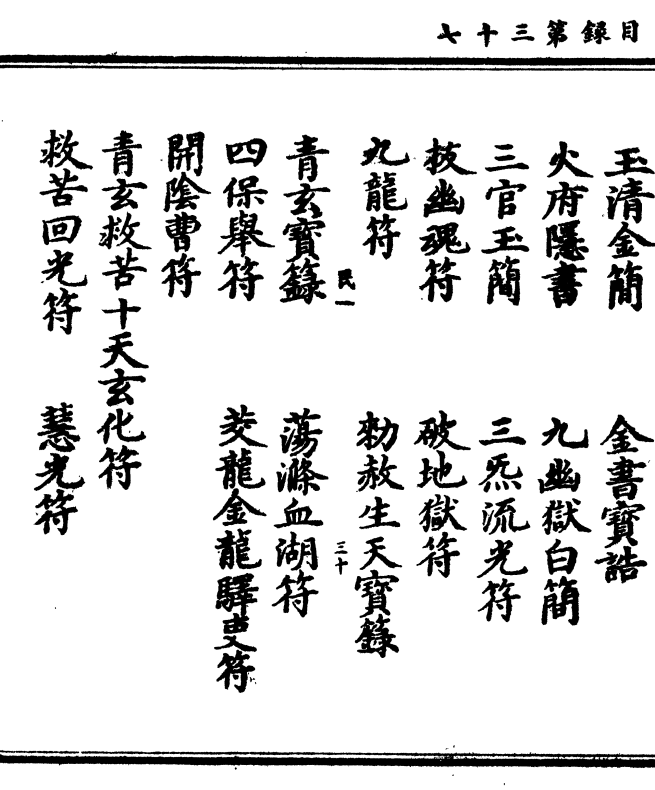 目錄第三十七
玉清金簡　金書寶誥
火府隱書　九幽獄白簡
三官玉簡　三炁流光符
拔幽魂符　破地獄符
九龍符　勑赦生天寶籙
民一　三十
青玄寶籙　蕩滌血湖符
四保舉符　茭龍金龍驛吏符
開陰曹符
青玄救苦十天玄化符
救苦回光符　慧光符